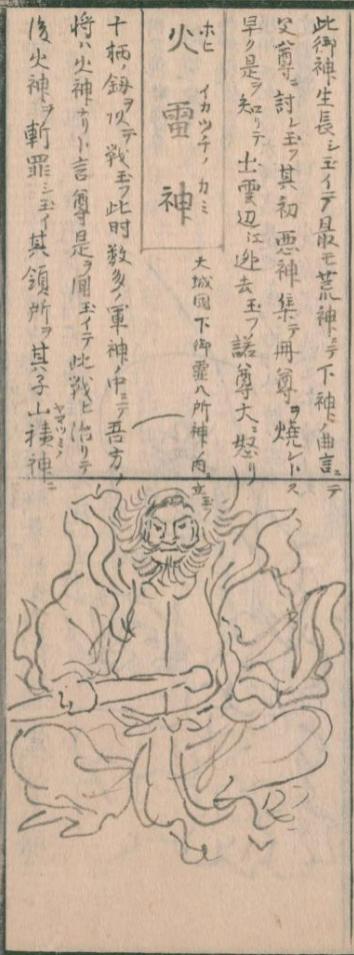 此御神生長シ玉イテ最モ荒神ニテ下神ト曲言ニテ
父尊ニ討レ玉フ其初悪神集テ冊尊ヲ焼レトス
早ク是ヲ知リテ出雲辺江逃去玉フ諾尊大ニ怒リ
火雷神
ホヒ イカツチノ カミ
大城國下御霊八所神ノ内ニ立玉
十柄ノ釼ヲ以テ戦玉フ此时数多ノ軍神ノ中ニテ吾方ノ
将ハ火神ナリト言尊是ヲ聞玉イテ此戦ヒ治リテ
後火神ヲ斬罪シ玉イ其領所ヲ其子山積神ニ
ヤマツミノ